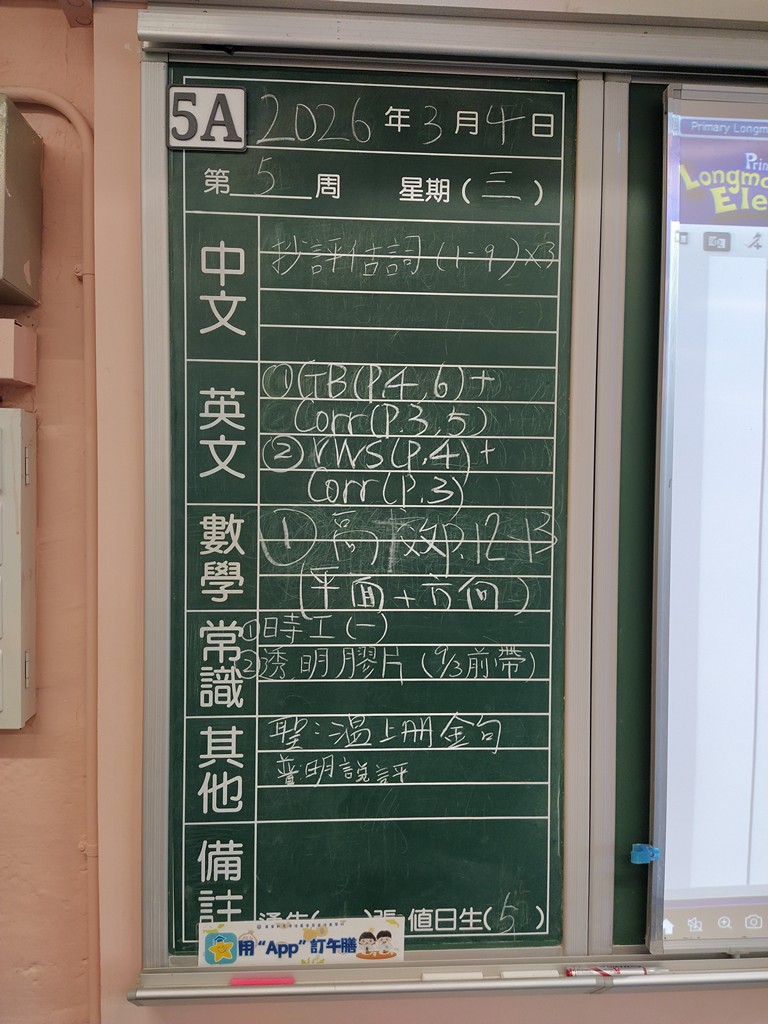 5A 2026年3月4日
第5周 星期(三)
中文
抄評估詞(1-9)×3
英文
①GB(P.4,6)+
Corr(P.3,5)
②VWS(P.4)+
Corr(P.3)
數學
①高下攷P.12-13
(平面+方向)
常識
①時工(一)
②透明膠片(9/3前帶)
其他
聖:溫上册金句
普:明說評
備註
值日生(5)
用“App”訂午膳
Primary Longm
Longm
Ele